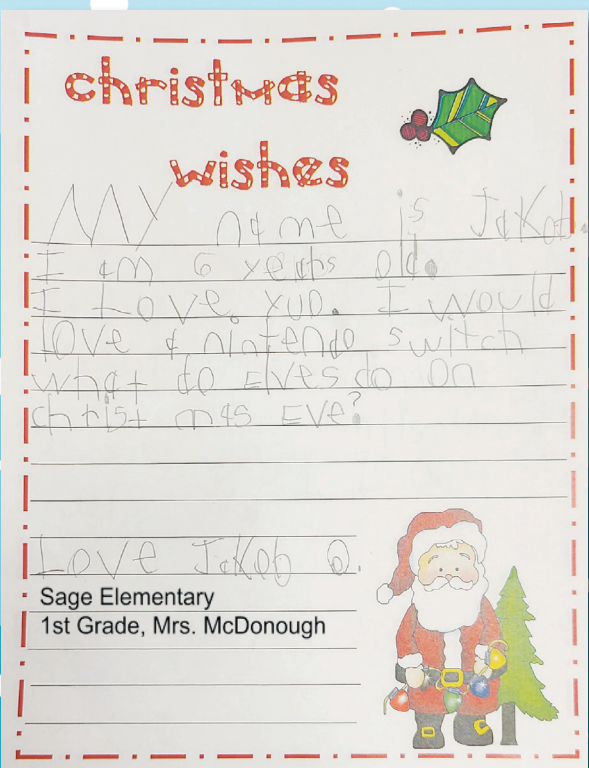 christmas
wishes
MY name is Jakob.
I am 6 yeahs old.
I Love. yuo. I would
love a nintendo switch
what do Elves do On
christ mas Eve?
Love Jakob O.
Sage Elementary
1st Grade, Mrs. McDonough